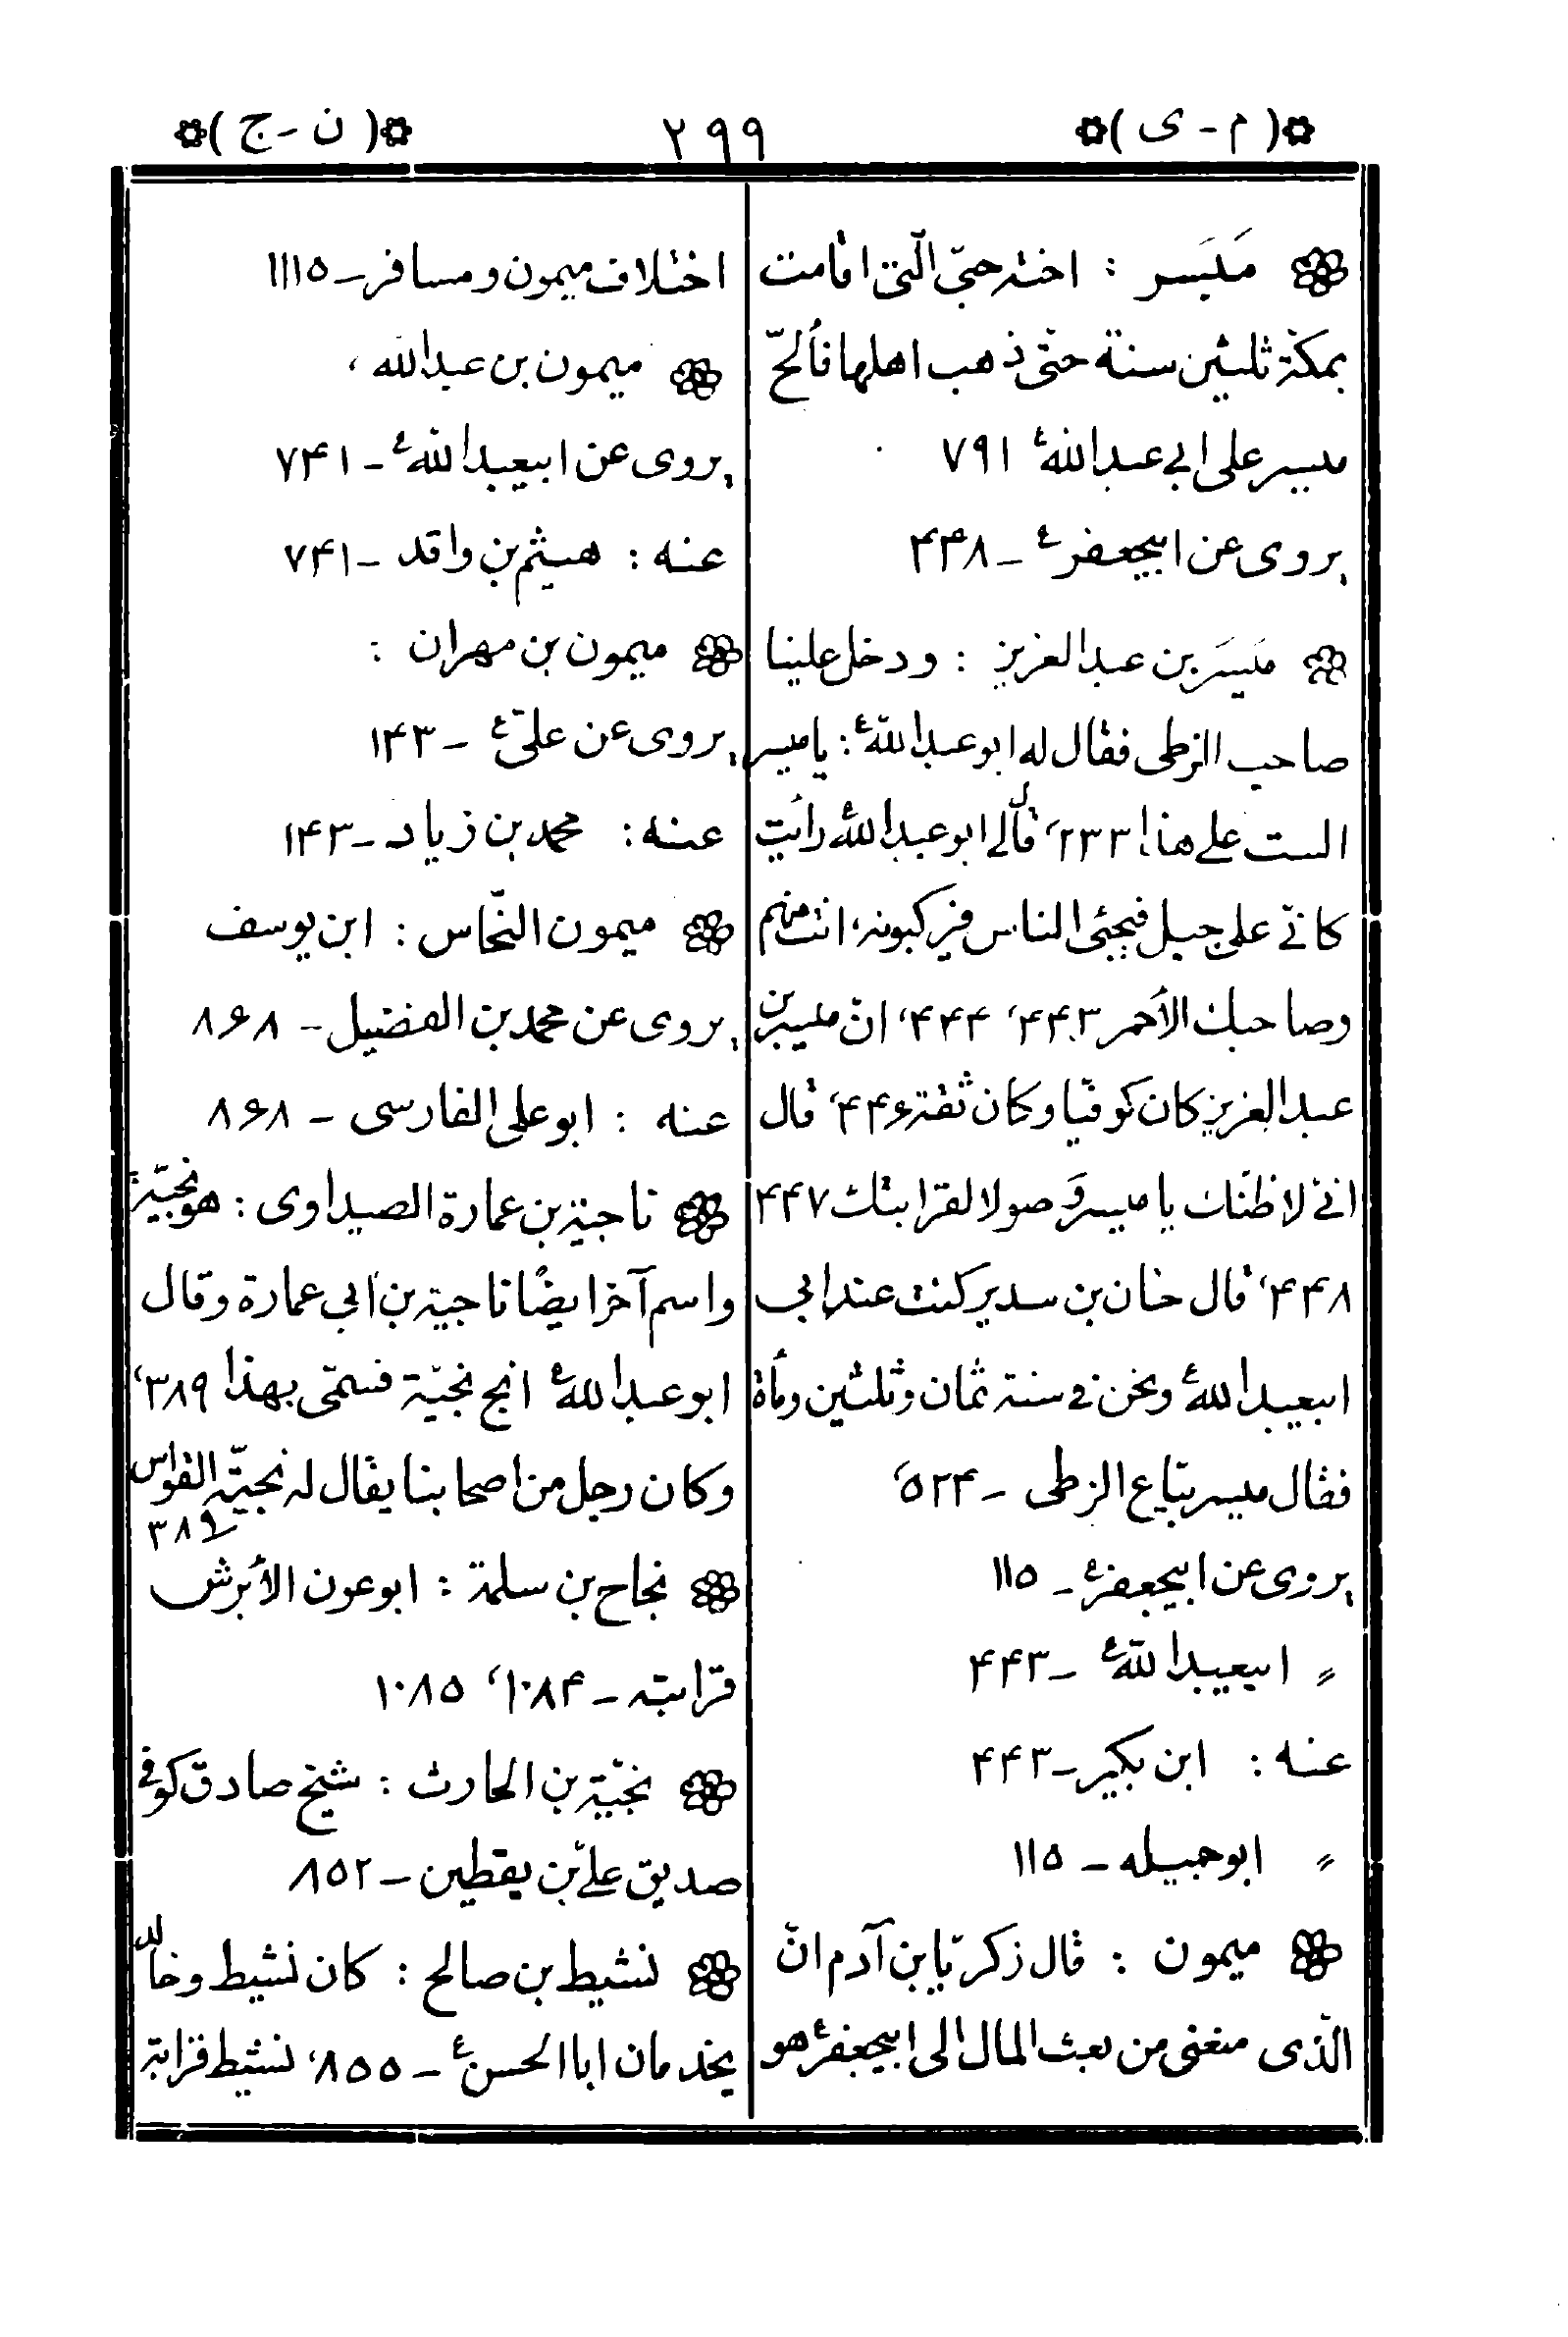 (م-ی)
٢٩٩
(ن-ج)
مَیَسر : اخته حبّی الّتی اقامت
بمکة ثلثین سنة حتی ذهب اهلها فألحّ
میسر علی ابی عبدالله ع ٧٩١
یروی عن ابیجعفر ع ـ ۴۳۸
مَیسَر بن عبد العزیز : ودخل علینا
صاحب الزطی فقال له ابو عبدالله ع : یا میسر
الست علی هذا! ٢٣٣، قال لی ابو عبدالله ع رأیت
کانّی علی جبل فیجئی الناس فیرکبونه، انت منهم
وصاحبك الأحمر ۴۴۳، ۴۴۴، انّ میسر بن
عبد العزیز کان کوفیّا وکان ثقة ۴۴۶، قال
انّی لاظنّك یا میسر وَصولا لقرابتك ۴۴۷
۴۴۸، قال حنان بن سدیر کنت عند ابی
ابیعبدالله ع ونحن فی سنة ثمان وثلثین ومأة
فقال میسر بیّاع الزطی ـ ۵۲۴،
یروی عن ابیجعفر ع ـ ١١۵
〃 ابیعبدالله ع ـ ۴۴۳
عنه : ابن بکیر ـ ۴۴۳
〃 ابوجمیله ـ ١١۵
میمون : قال زکریّا بن آدم انّ
الّذی منعنی من بعث المال الی ابیجعفر ع هو
اختلاف میمون و مسافر ـ ١١١۵
میمون بن عبدالله ،
یروی عن ابیعبدالله ع ـ ٧۴١
عنه : هیثم بن واقد ـ ٧۴١
میمون بن مهران :
یروی عن علیّ ع ـ ١۴٣
عنه : محمد بن زیاد ـ ١۴٣
میمون النخّاس : ابن یوسف
یروی عن محمد بن الفضیل ـ ٨۶٨
عنه : ابو علی الفارسی ـ ٨۶٨
ناجیة بن عمارة الصیداوی : هو نجیّة
واسم آخر ایضًا ناجیة بن أبی عمارة وقال
ابو عبدالله ع انج نجیّة فسمّی بهذا ٣٨٩،
وکان رجل من اصحابنا یقال له نجیّة القوّاس
ـ ٣٨٩
نجاح بن سلمة : ابو عون الأبرش
قرابته ـ ١٠٨۴، ١٠٨۵
نجیّة بن الحارث : شیخ صادق کوفی
صدیق علیّ بن یقطین ـ ٨۵٢
نشیط بن صالح : کان نشیط وخالد
یخدمان ابا الحسن ع ـ ٨۵۵، نشیط قرابة